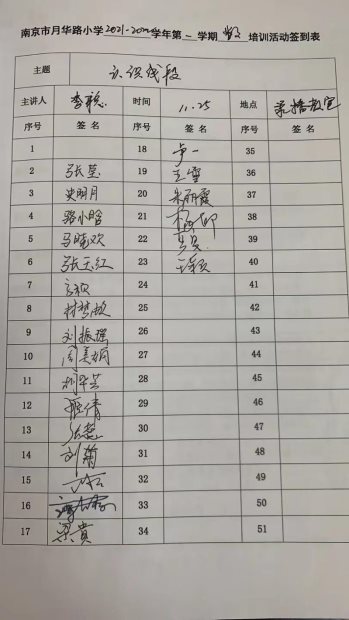 南京市月华路小学2021-2022学年第一学期数学培训活动签到表
主题 认识线段
主讲人 李聪 时间 11.25 地点 录播教室
序号 签名 序号 签名 序号 签名
1 18 卢一 35
2 张莹 19 王雪 36
3 史明月 20 朱丽霞 37
4 路小晗 21 38
5 马晓欢 22 39
6 张玉红 23 王颖 40
7 24 41
8 25 42
9 刘振瑞 26 43
10 周美娟 27 44
11 28 45
12 29 46
13 30 47
14 刘菊 31 48
15 32 49
16 33 50
17 梁贵 34 51